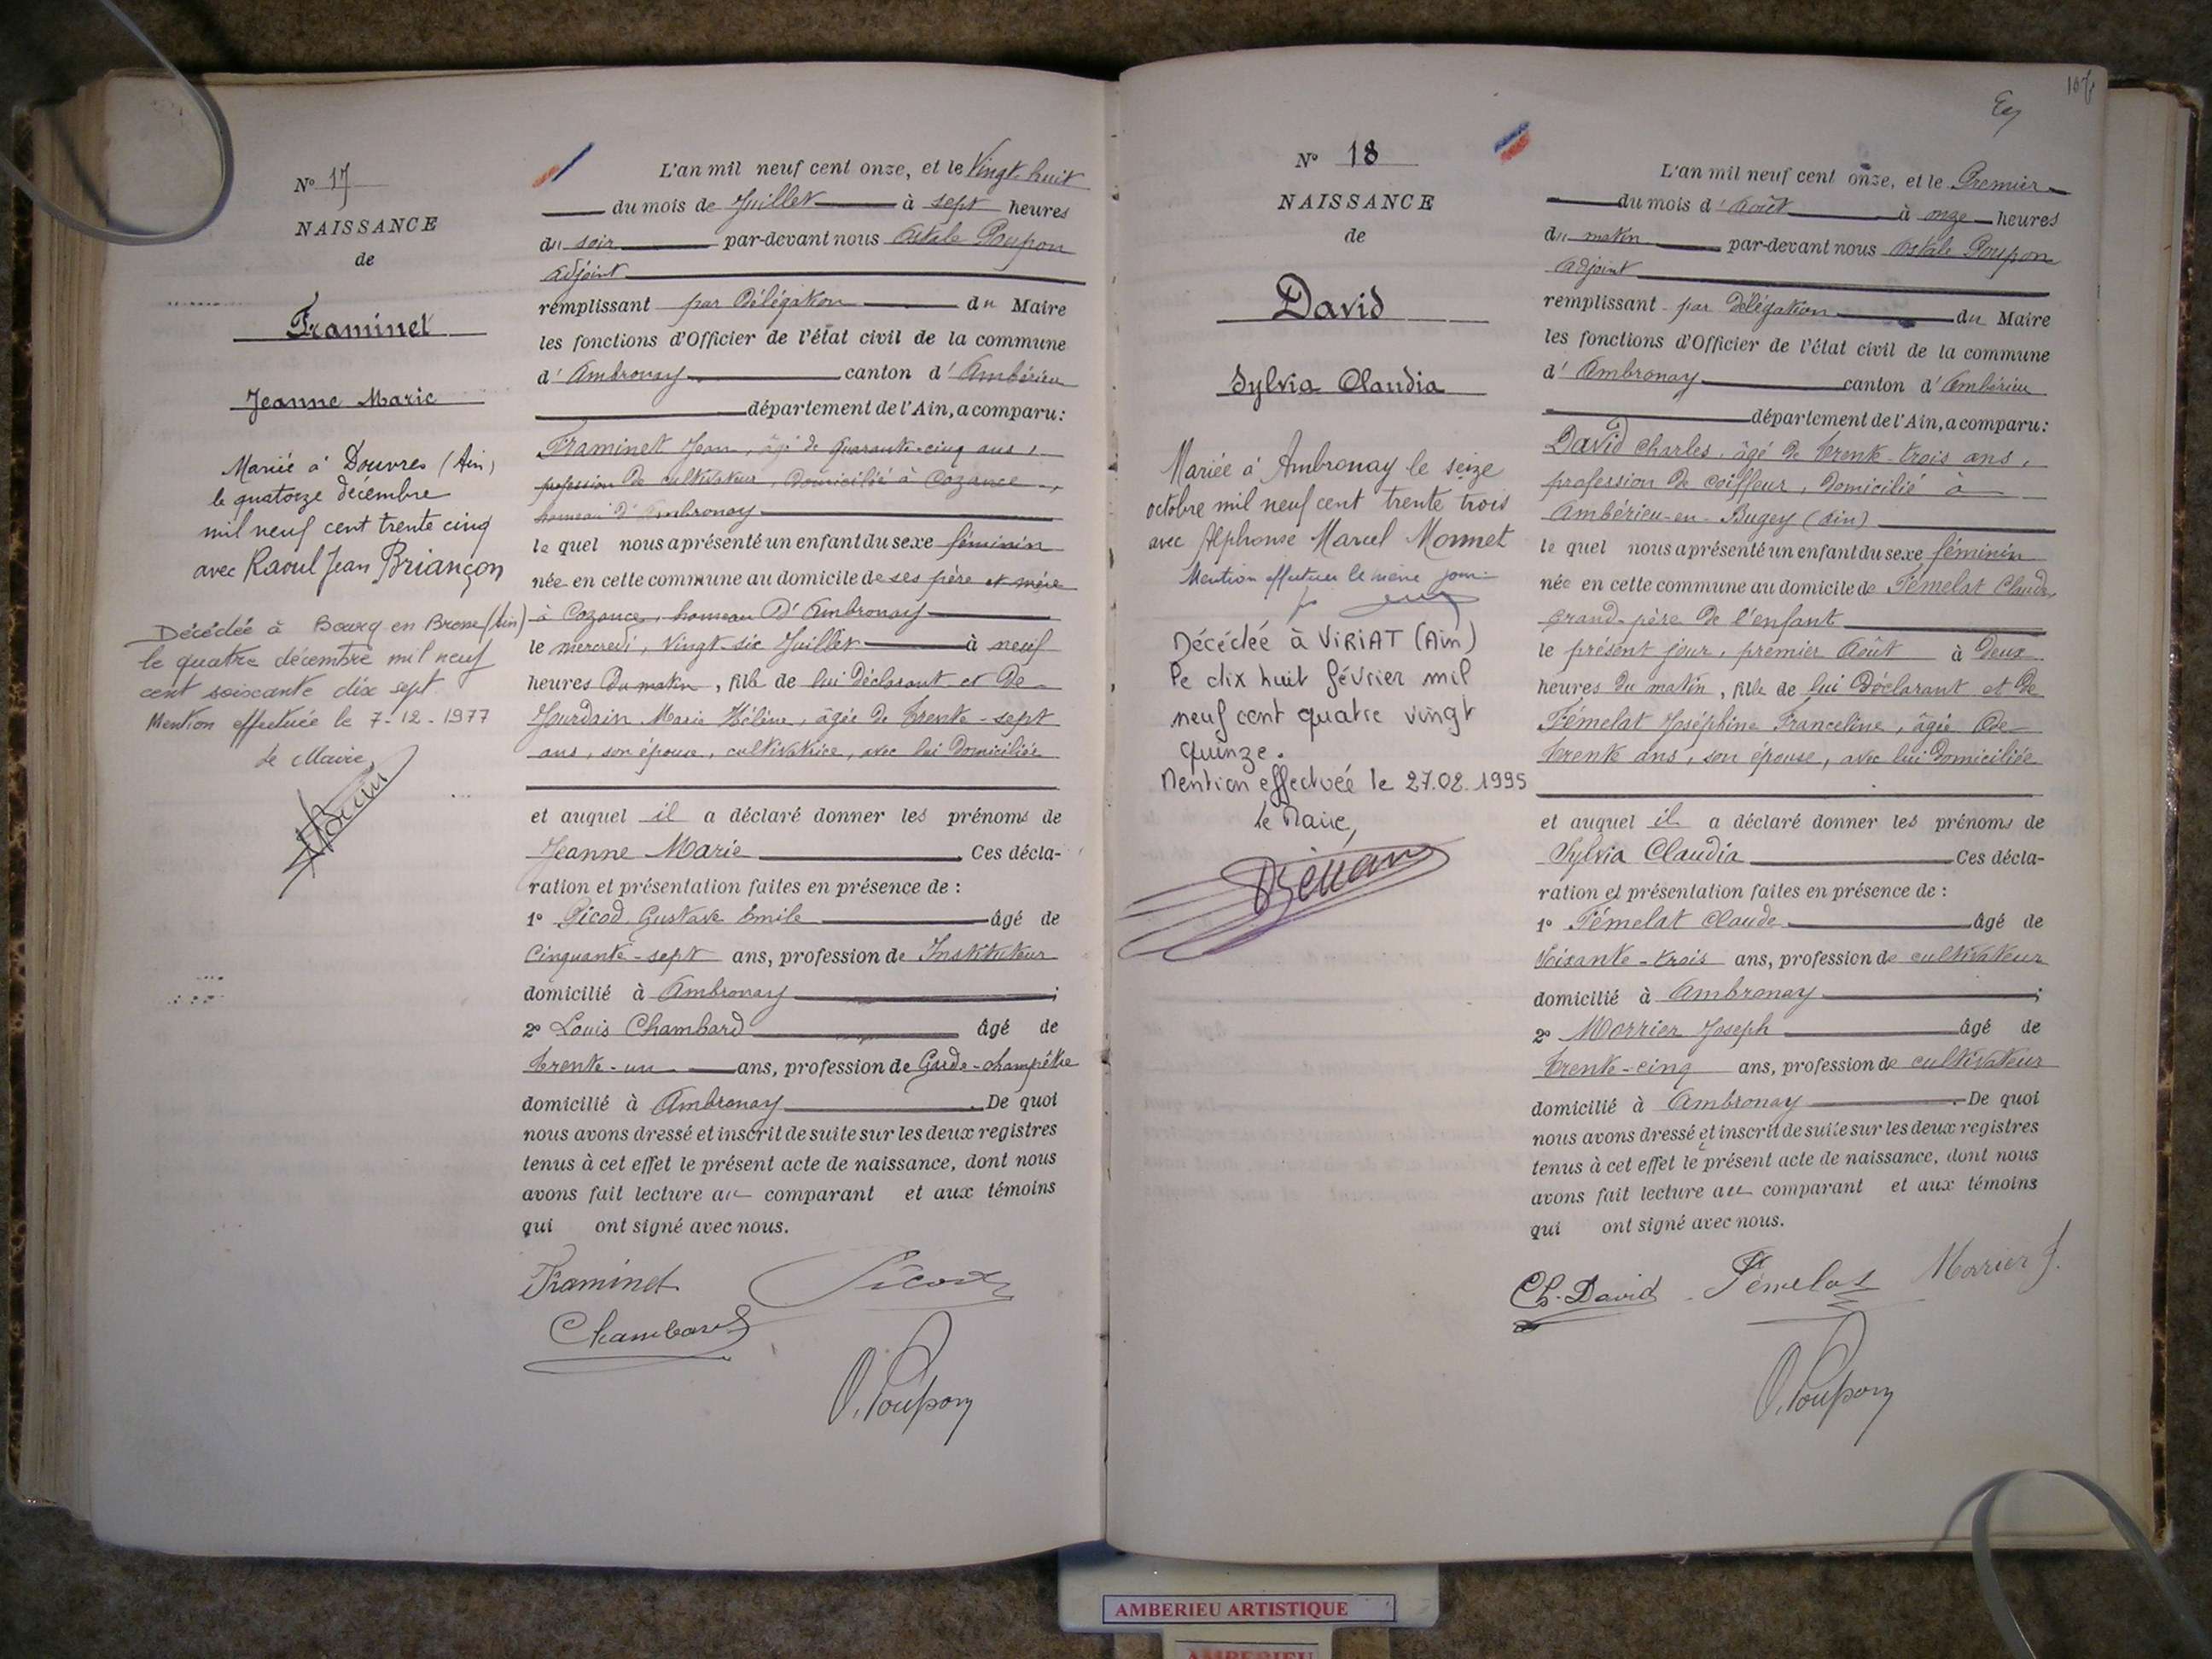 Nº 17
NAISSANCE
de
Framinet
Jeanne Marie
Mariée à Douvres (Ain)
le quatorze décembre
mil neuf cent trente cinq
avec Raoul Jean Briançon
Décédée à Bourg en Bresse (Ain)
le quatre décembre mil neuf
cent soixante dix sept
Mention effectuée le 7-12-1977
Le Maire,
L'an mil neuf cent onze, et le Vingt-huit
du mois de Juillet à sept heures
du soir par-devant nous Poupon
adjoint
remplissant par délégation du Maire
les fonctions d'Officier de l'état civil de la commune
d'Ambronay canton d'Ambérieu
département de l'Ain, a comparu:
Framinet Jean, âgé de quarante-cinq ans,
profession de cultivateur, domicilié à Cozance,
hameau d'Ambronay
le quel nous a présenté un enfant du sexe féminin
née en cette commune au domicile de ses père et mère
à Cozance, hameau d'Ambronay
le mercredi, vingt-six Juillet à neuf
heures du matin, fille de lui déclarant et de
Jourdain Marie Hélène, âgée de trente-sept
ans, son épouse, cultivatrice, avec lui domiciliée
et auquel il a déclaré donner les prénoms de
Jeanne Marie Ces décla-
ration et présentation faites en présence de :
1º Picod, Gustave Emile âgé de
Cinquante-sept ans, profession de Instituteur
domicilié à Ambronay ;
2º Louis Chambard âgé de
trente-un ans, profession de Garde-champêtre
domicilié à Ambronay. De quoi
nous avons dressé et inscrit de suite sur les deux registres
tenus à cet effet le présent acte de naissance, dont nous
avons fait lecture au comparant et aux témoins
qui ont signé avec nous.
Framinet Picod
Chambard
O. Poupon
107
Nº 18
NAISSANCE
de
David
Sylvia Claudia
Mariée à Ambronay le seize
octobre mil neuf cent trente trois
avec Alphonse Marcel Monnet
Mention effectuée le même jour
Décédée à VIRIAT (Ain)
le dix huit février mil
neuf cent quatre vingt
quinze.
Mention effectuée le 27.02.1995
le Maire,
L'an mil neuf cent onze, et le Premier
du mois d'Août à onze heures
du matin par-devant nous Poupon
adjoint
remplissant par délégation du Maire
les fonctions d'Officier de l'état civil de la commune
d'Ambronay canton d'Ambérieu
département de l'Ain, a comparu:
David Charles, âgé de trente-trois ans,
profession de coiffeur, domicilié à
Ambérieu-en-Bugey (Ain)
le quel nous a présenté un enfant du sexe féminin
née en cette commune au domicile de Fémelat Claude,
grand-père de l'enfant
le présent jour, premier Août à deux
heures du matin, fille de lui déclarant et de
Fémelat Joséphine Franceline, âgée de
trente ans, son épouse, avec lui domiciliée
et auquel il a déclaré donner les prénoms de
Sylvia Claudia Ces décla-
ration et présentation faites en présence de :
1º Fémelat Claude âgé de
Soixante-trois ans, profession de cultivateur
domicilié à Ambronay ;
2º Morrier Joseph âgé de
trente-cinq ans, profession de cultivateur
domicilié à Ambronay. De quoi
nous avons dressé et inscrit de suite sur les deux registres
tenus à cet effet le présent acte de naissance, dont nous
avons fait lecture au comparant et aux témoins
qui ont signé avec nous.
Ch. David Fémelat Morrier J.
O. Poupon
AMBERIEU ARTISTIQUE
AMBERIEU